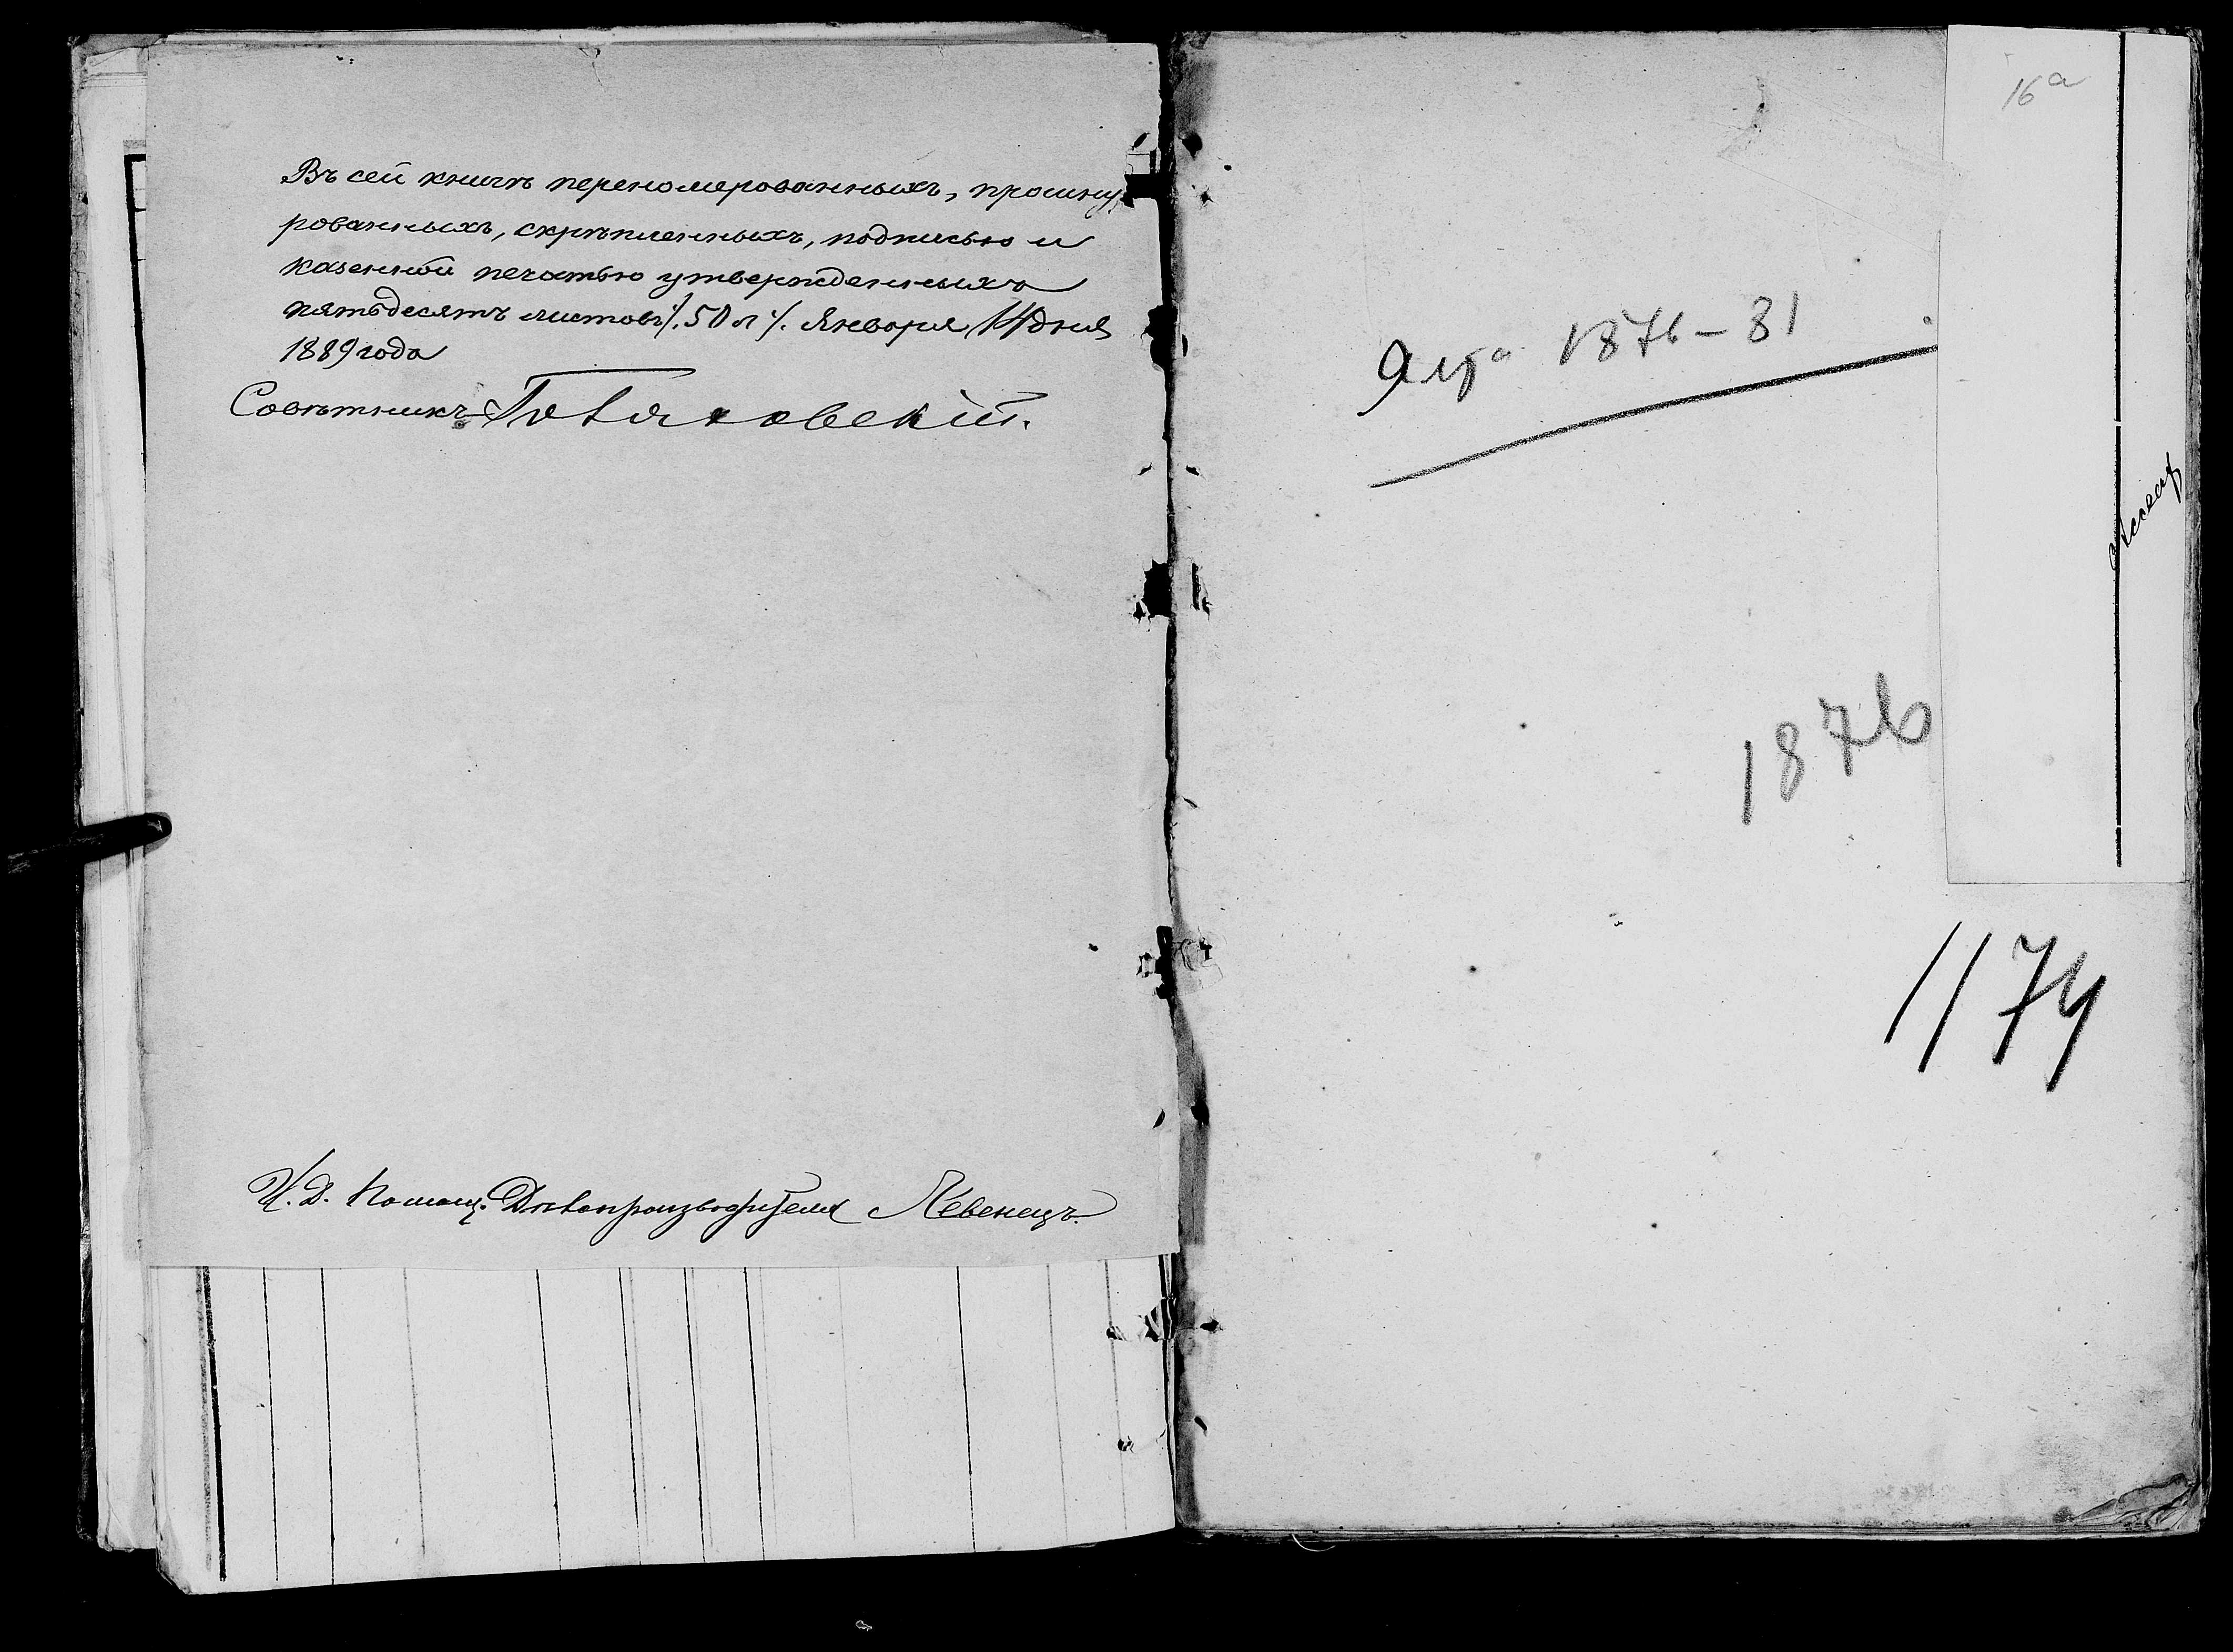 Въ сей книгѣ перенумерованныхъ, прошну-
рованныхъ, скрѣпленныхъ, подписью и
казенной печатью утвержденныхъ
пятьдесятъ листовъ /. 50 л /. Января 14 дня
1889 года
Совѣтникъ
И. Д. Помощ. Дѣлопроизводителя Левенецъ.
Ялта 1876-81
1876
1174
16а